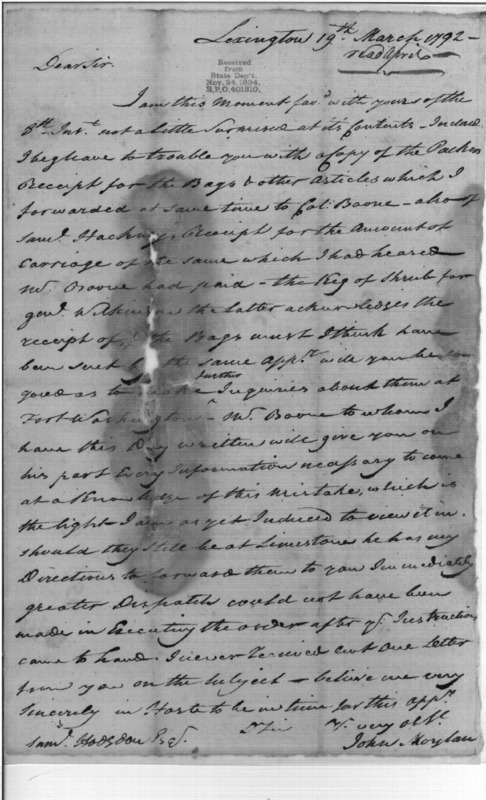 Lexington 19th March 1792 -
Dear Sir.
read April
Received
from
State Dep't.
Nov. 24. 1894.
R.P.O. 401210.
I am this Moment favd with yours of the
8th Inst not a Little Surprised at its Contents - Indeed
I beg leave to trouble you with a Copy of the Packers
Receipt for the Bags & other Articles which I
forwarded at same time to Col: Boone - also of
Saml. Receipt for the Amount of
Carriage of the same which I had heared
Mr. Boone had paid - the Keg of Shrub for
genl. Wilkinson the latter acknowledges the
receipt of, the Bags must I think have
been sent by the same Oppy. will you be so
good as to make further Inquiries about them at
Fort Washington - Mr. Boone to whom I
have this Day written will give you on
his part Every Information necessary to come
at a Knowledge of this Mistake, which is
the light I am as yet Induced to view it in.
should they still be at Limestone he has my
Directions to forward them to you Immediately
greater Dispatch could not have been
made in Executing the order after yr. Instructions
came to hand. I never Received but One Letter
from you on the Subject - believe me very
Sincerely in Haste to be in time for this Oppy.
Dr Sir Yr. very ob St.
Saml. Hodgdon Esqr.
John Moylan